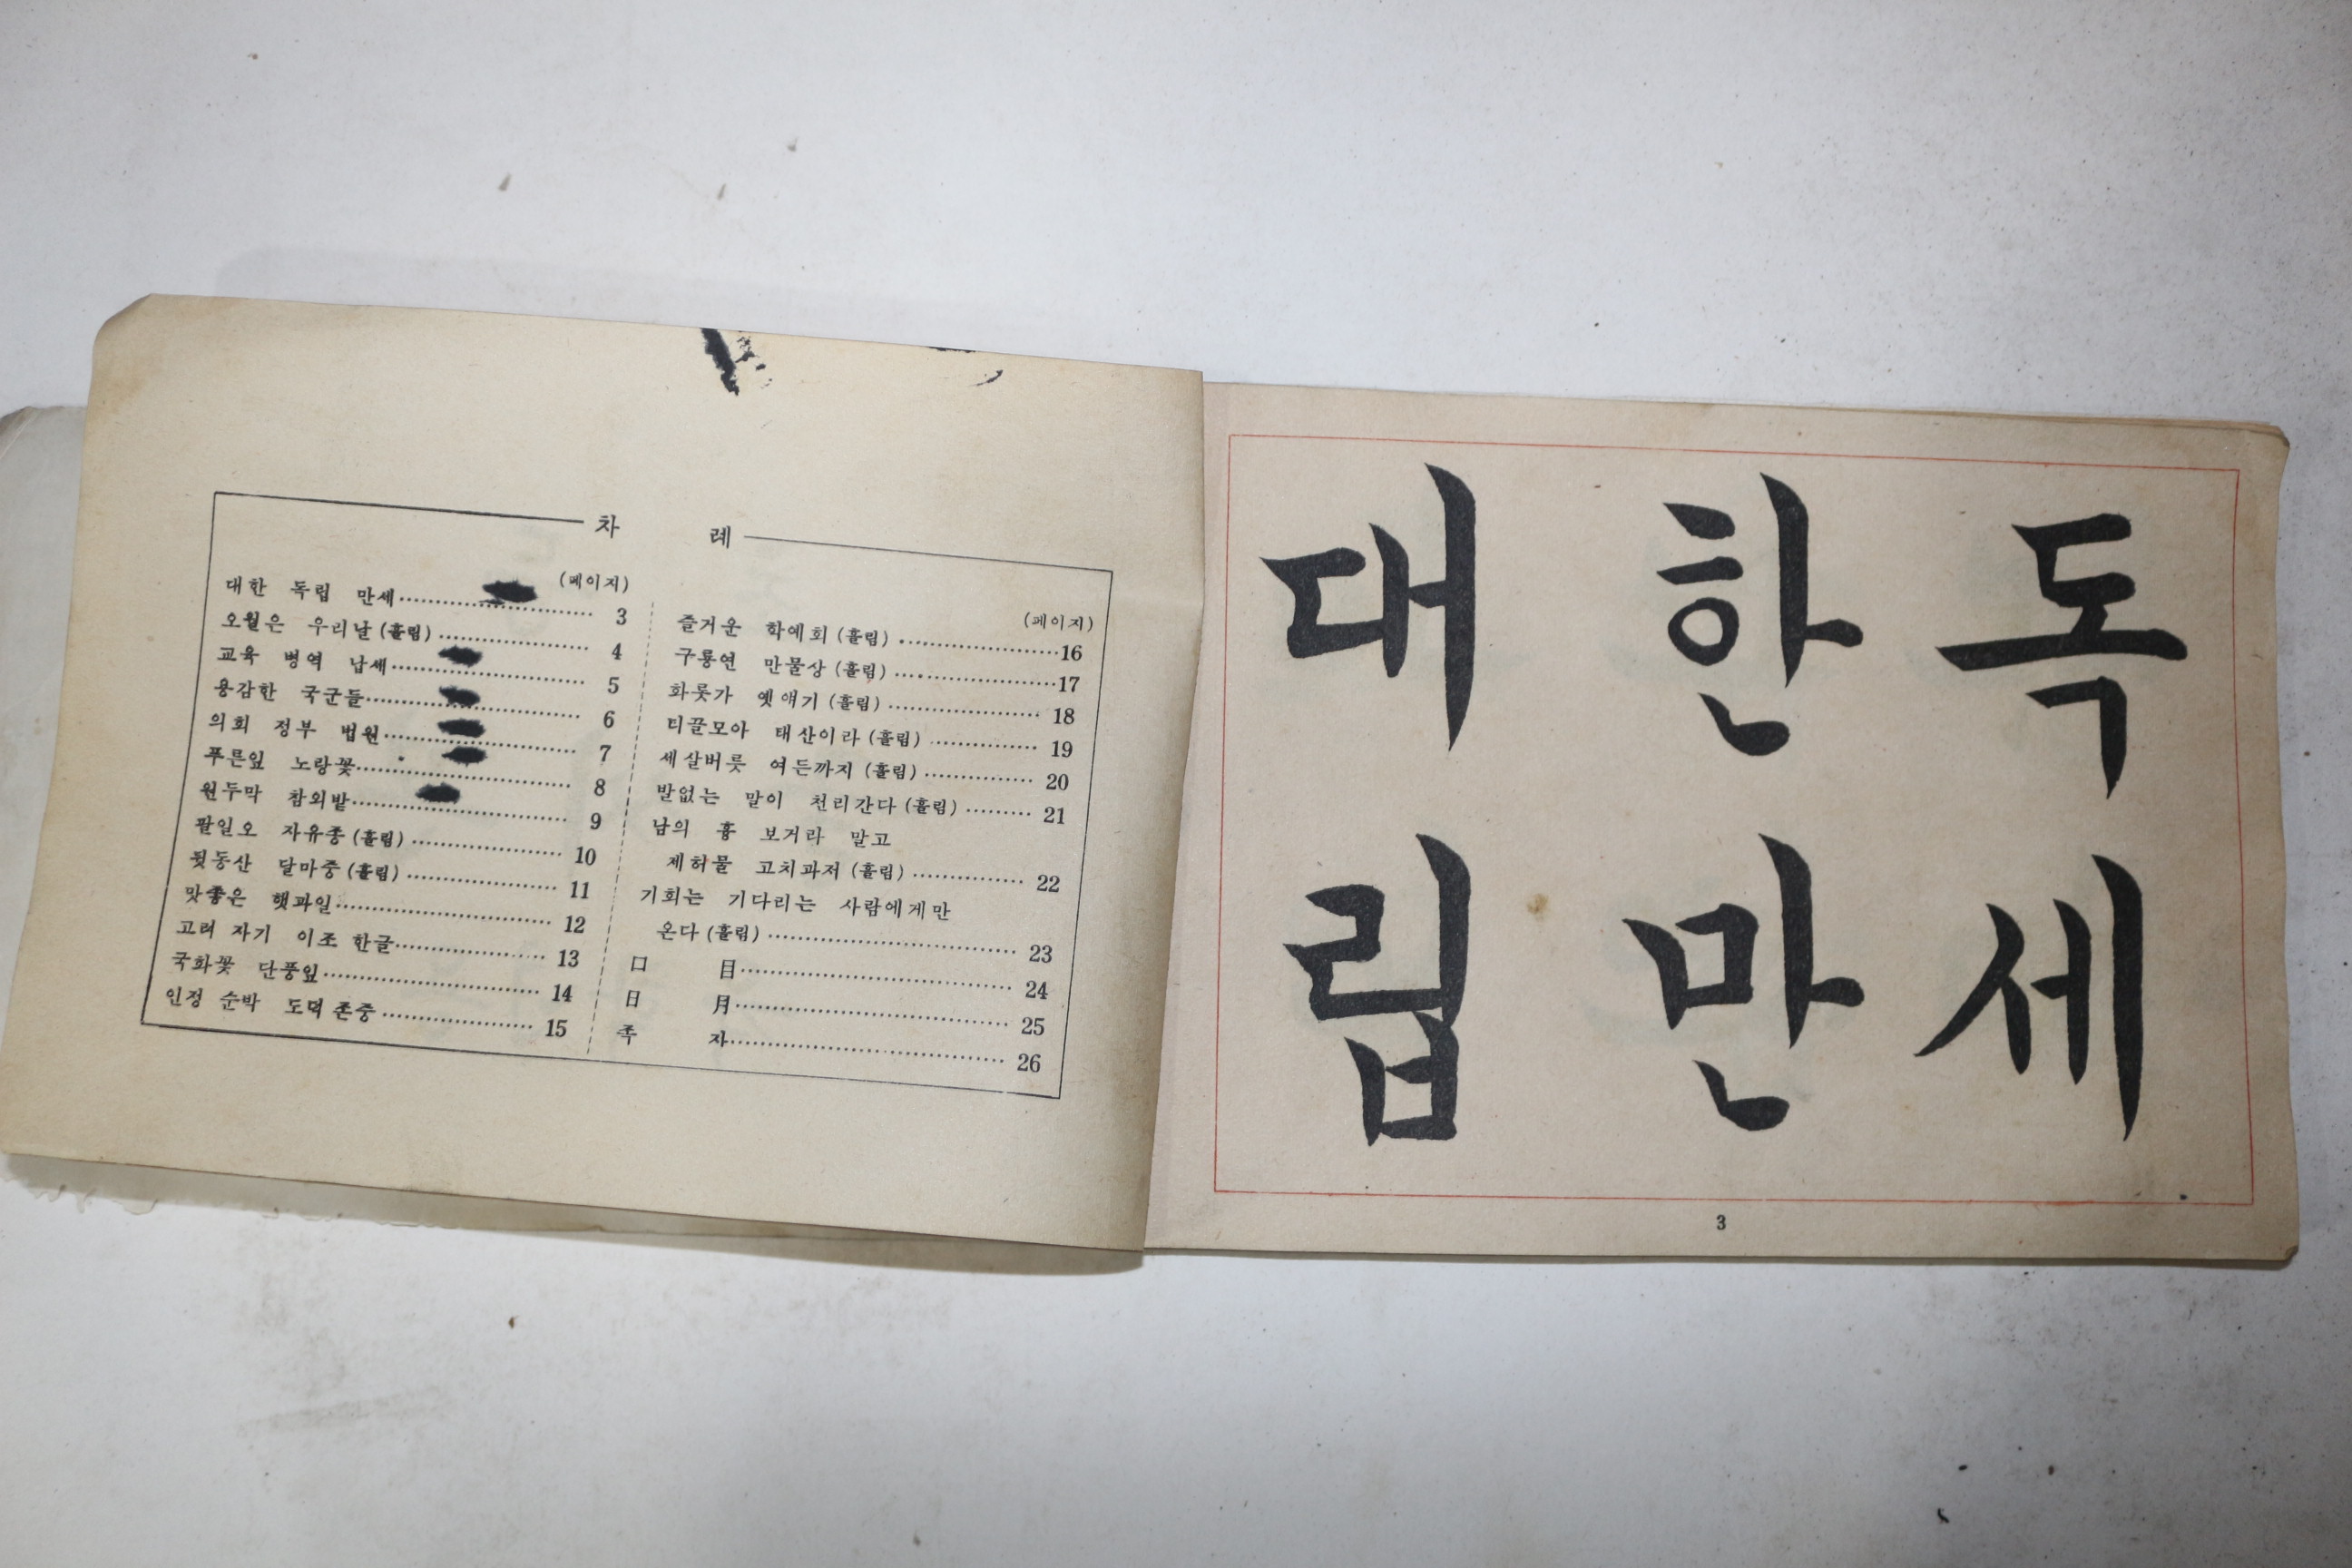 차 례
(페이지)
대한 독립 만세 3
오월은 우리날 (흘림) 4
교육 병역 납세 5
용감한 국군들 6
의회 정부 법원 7
푸른잎 노랑꽃 8
원두막 참외밭 9
팔일오 자유종 (흘림) 10
뒷동산 달마중 (흘림) 11
맛좋은 햇과일 12
고려 자기 이조 한글 13
국화꽃 단풍잎 14
인정 순박 도덕 존중 15
(페이지)
즐거운 학예회 (흘림) 16
구룡연 만물상 (흘림) 17
화롯가 옛얘기 (흘림) 18
티끌모아 태산이라 (흘림) 19
세살버릇 여든까지 (흘림) 20
발없는 말이 천리간다 (흘림) 21
남의 흉 보거라 말고
제허물 고치과저 (흘림) 22
기회는 기다리는 사람에게만
온다 (흘림) 23
口 目 24
日 月 25
족 자 26
대한독
립만세
3